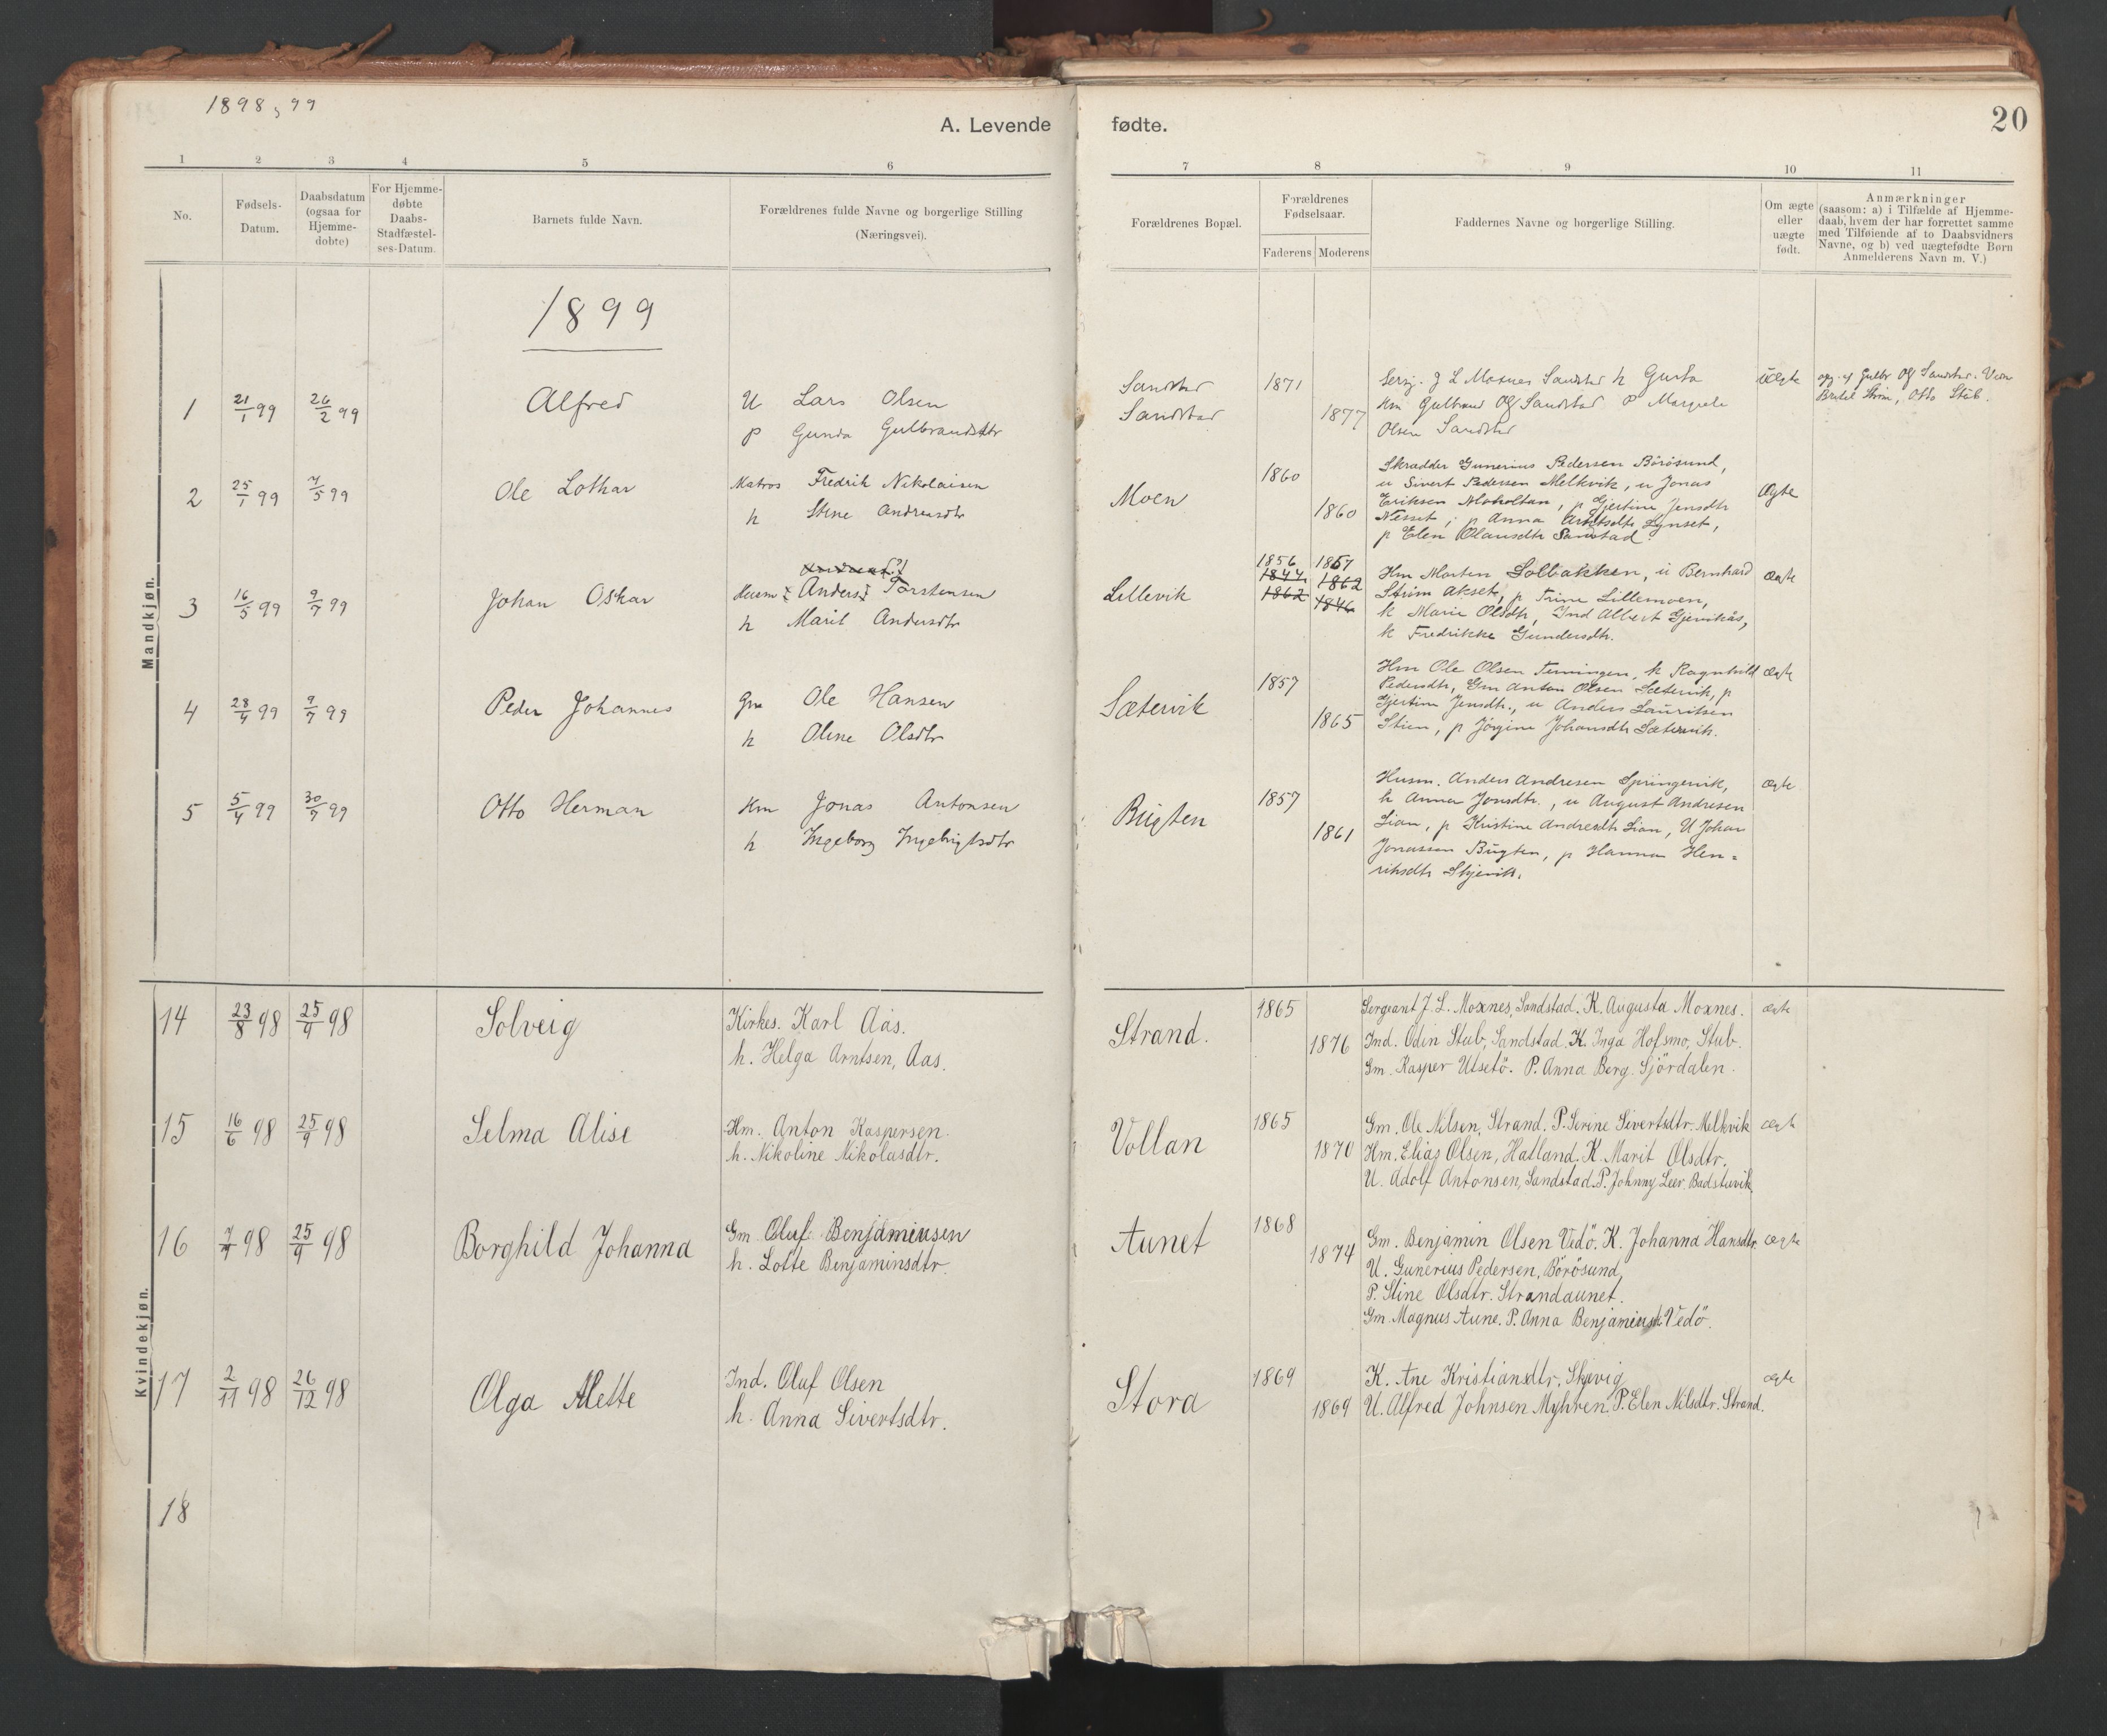 1898, 99
A. Levende fødte.
20
1 2 3 4 5 6 7 8 9 10 11
No.
Fødsels-
Datum.
Daabsdatum
(ogsaa for
Hjemme-
døbte)
For Hjemme-
døbte
Daabs-
Stadfæstel-
ses-Datum.
Barnets fulde Navn.
Forældrenes fulde Navne og borgerlige Stilling
(Næringsvei).
Forældrenes Bopæl.
Forældrenes
Fødselsaar.
Faderens Moderens
Faddernes Navne og borgerlige Stilling.
Om ægte
eller
uægte
født.
Anmærkninger
(saasom: a) i Tilfælde af Hjemme-
daab, hvem der har forrettet samme
med Tilføiende af to Daabsvidners
Navne, og b) ved uægtefødte Børn
Anmelderens Navn m. V.)
Mandkjøn.
1899
1 21/1 99 26/2 99 Alfred
U Lars Olsen
p Gunda Gulbrandsdtr
Sandstad
Sandstad
1871
1877
Serg. J L Moxnes Sandstad k Gusta
Km Gulbrand Olsen Sandstad P Margrete
Olsen Sandstad
Uægte
2 25/1 99 7/5 99 Ole Lothar
Matros Fredrik Nikolaisen
h Stine Andreasdtr
Moen
1860
1860
Skrædder Gunerius Pedersen Börösund,
u Sivert Pedersen Melkvik, u Jonas
Eriksen Moholtan, p Gjertine Jensdtr
Nesset, p Anna Arntsdtr Lynset,
p Elen Olausdtr Sandstad.
Ægte
3 16/5 99 9/7 99 Johan Oskar
Husm Anders Torstensen
h Marit Andersdtr
Lillevik
1856 1857
1844 1862
1862 1846
Hm Morten Solbakken, u Bernhard
Ström Akset, p Trine Lillemoen,
k Marie Olsdtr, Ind Albert Gjevikås,
k Fredrikke Gundersdtr.
ægte
4 28/4 99 9/7 99 Peder Johannes
Gm Ole Hansen
h Oline Olsdtr
Sætervik
1857
1865
Hm Ole Olsen Terningen, k Ragnhild
Pedersdtr, Gm Anton Olsen Sætervik, p
Gjertine Jensdtr., u Anders Lauritsen
Stien, p Jörgine Johansdtr Sætervik.
ægte
5 5/4 99 30/7 99 Otto Herman
Km Jonas Antonsen
h Ingeborg Ingebrigtsdtr
Bugten
1857
1861
Husm. Anders Andresen Springervik,
k Anna Jonsdtr., u August Andresen
Lian, p Kristine Andresdtr Lian, U Johan
Jonassen Bugten, p Hanna Hen=
riksdtr Skjevik.
ægte
Kvindekjøn.
14 23/8 98 25/9 98 Solveig
Kirkes. Karl Aas.
h. Helga Arntsen, Aas.
Strand.
1865
1876
Sergeant J. L. Moxnes, Sandstad. K. Augusta Moxnes.
Ind. Odin Stub, Sandstad. K. Inga Hofsmo, Stub.
Gm. Kasper Utsetö. P. Anna Berg. Sjördalen.
ægte
15 16/6 98 25/9 98 Selma Alise
Hm. Anton Kaspersen.
h. Nikoline Nikolasdtr.
Vollan
1865
1870
Gm. Ole Nilsen, Strand. P. Serine Sivertsdtr. Melkvik
Hm. Elias Olsen, Hatland. K. Marit Olsdtr.
U. Adolf Antonsen, Sandstad. P. Johnny Leer, Badstuvik.
ægte
16 7/9 98 25/9 98 Borghild Johanna
Gm Oluf Benjaminsen
h. Lotte Benjaminsdtr.
Aunet
1868
1874
Gm. Benjamin Olsen Vedö. K. Johanna Hansdtr.
U. Gunerius Pedersen, Börösund,
P. Stine Olsdtr. Strandaunet.
Gm. Magnus Aune. P. Anna Benjaminsdtr Vedö.
ægte
17 2/11 98 26/12 98 Olga Alette
Ind. Oluf Olsen
h. Anna Sivertsdtr.
Stora
1869
1869
K. Ane Kristiansdtr, Skjevig
U. Alfred Johnsen Myhren. P. Elen Nilsdtr. Strand.
ægte
18